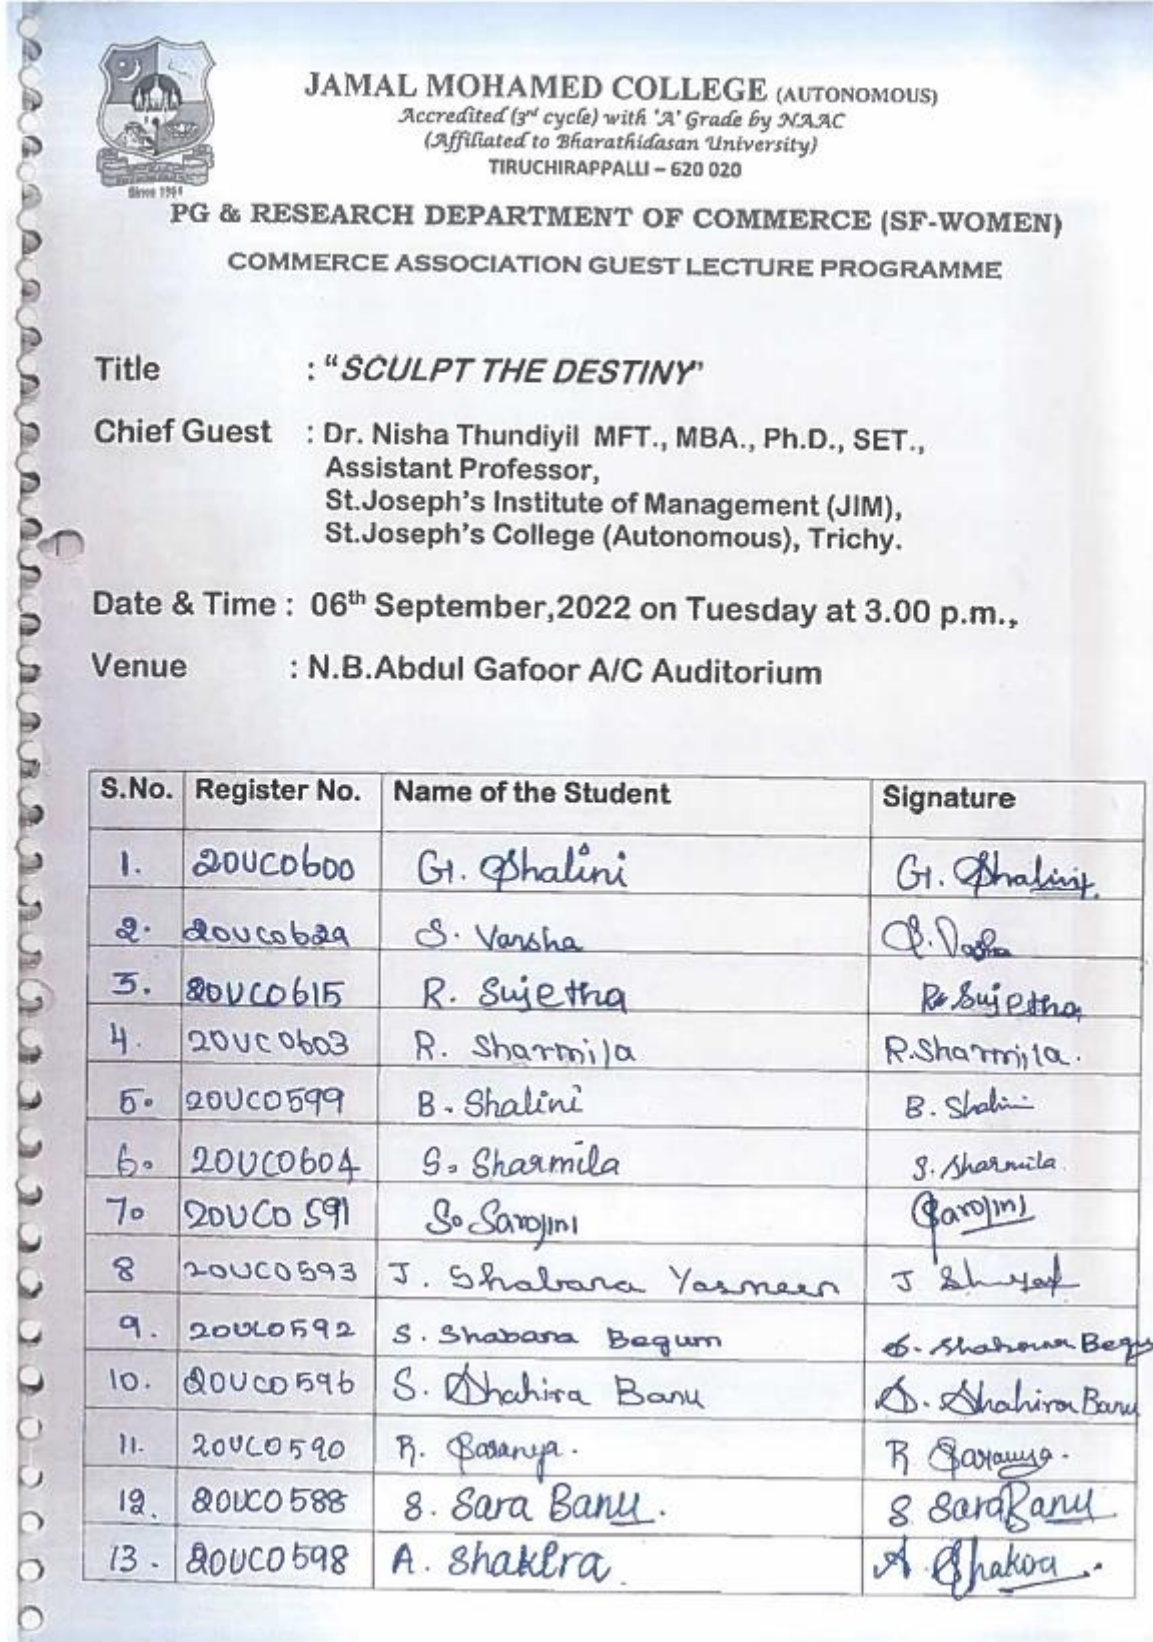 JAMAL MOHAMED COLLEGE (AUTONOMOUS)
Accredited (3rd cycle) with 'A' Grade by NAAC
(Affiliated to Bharathidasan University)
TIRUCHIRAPPALLI – 620 020
Since 1951
PG & RESEARCH DEPARTMENT OF COMMERCE (SF-WOMEN)
COMMERCE ASSOCIATION GUEST LECTURE PROGRAMME
Title : "SCULPT THE DESTINY"
Chief Guest : Dr. Nisha Thundiyil MFT., MBA., Ph.D., SET.,
Assistant Professor,
St.Joseph's Institute of Management (JIM),
St.Joseph's College (Autonomous), Trichy.
Date & Time : 06th September,2022 on Tuesday at 3.00 p.m.,
Venue : N.B.Abdul Gafoor A/C Auditorium
S.No. Register No. Name of the Student Signature
1. 20UCO600 G. Shalini G. Shalini
2. 20UCO629 S. Varsha S. Varsha
3. 20UCO615 R. Sujetha R. Sujetha
4. 20UCO603 R. Sharmila R. Sharmila.
5. 20UCO599 B. Shalini B. Shalini
6. 20UCO604 S. Sharmila S. Sharmila
7. 20UCO591 S. Sarojini Sarojini
8 20UCO593 J. Shabana Yasmeen J
9. 20UCO592 S. Shabana Begum S. Shabana Begu
10. 20UCO596 S. Shahira Banu S. Shahira Banu
11. 20UCO590 R. Saranya. R Saranya.
12. 20UCO588 S. Sara Banu. S Sara Banu
13. 20UCO598 A. Shakira A. Shakira.